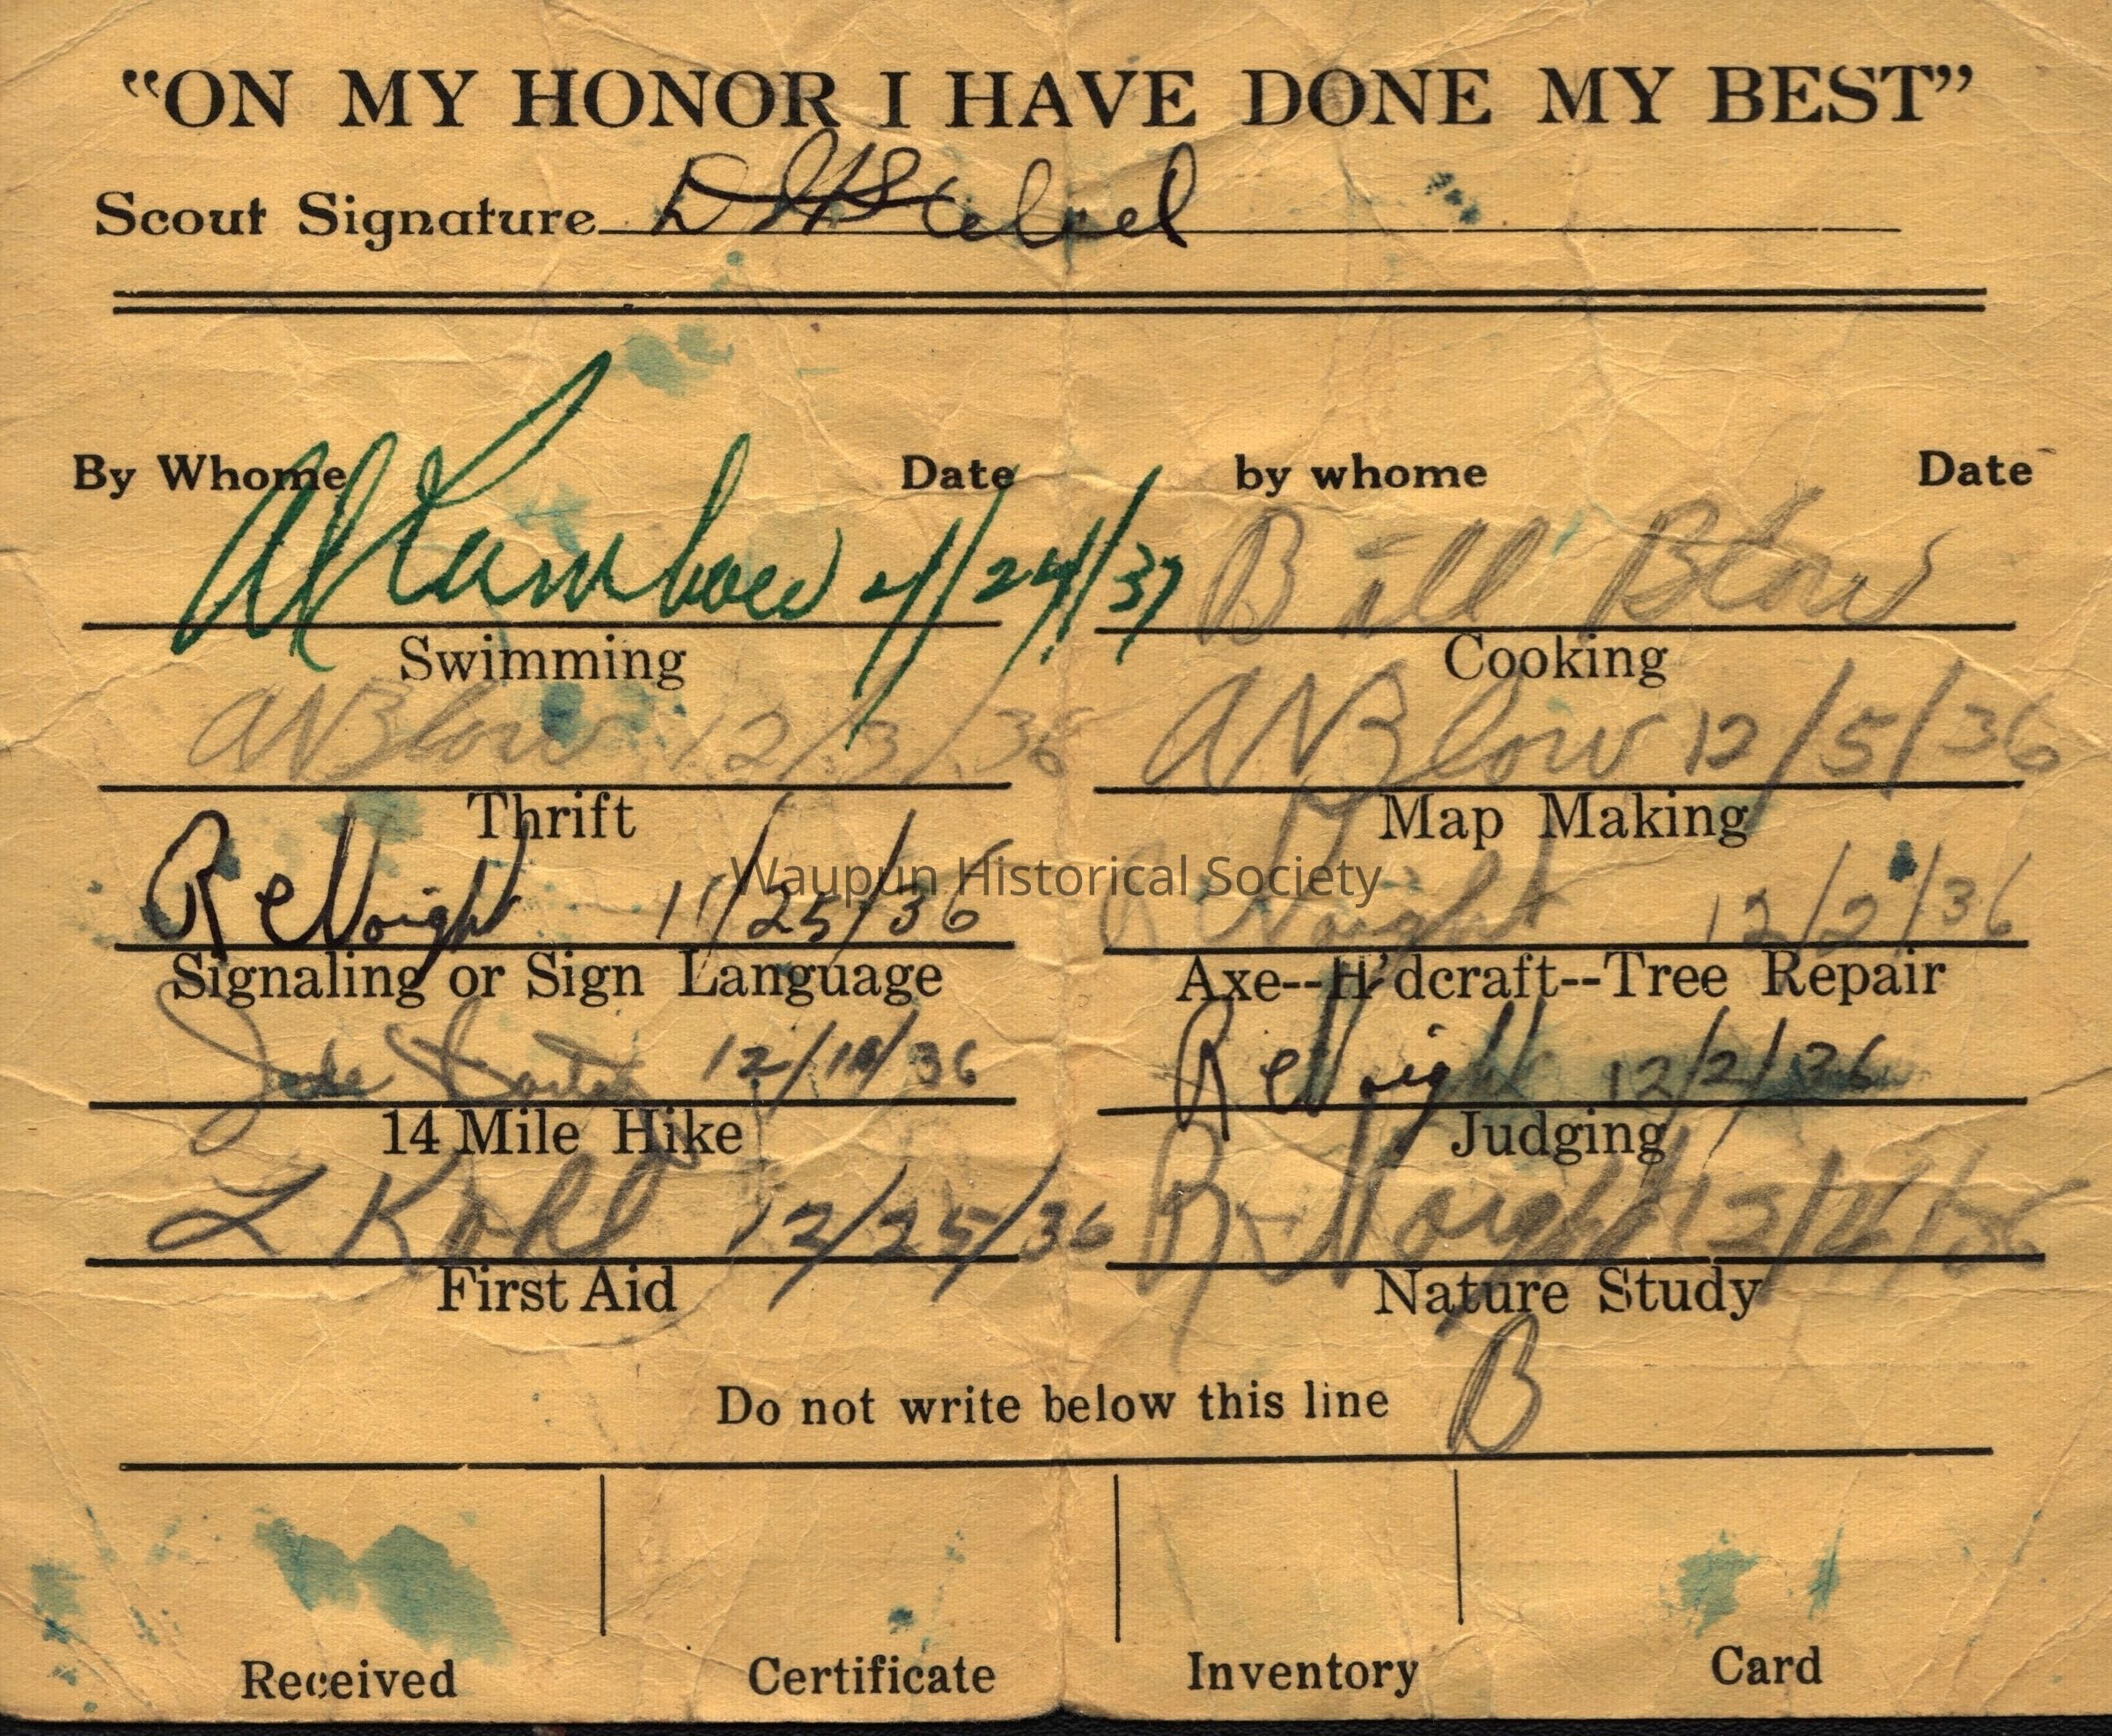 “ON MY HONOR I HAVE DONE MY BEST”
Scout Signature
By Whome Date by whome Date
4/24/37 Bill Blow
Swimming Cooking
A N Blow 12/3/36 A N Blow 12/5/36
Thrift Map Making
R e Voight 11/25/36 R e Voight 12/2/36
Waupun Historical Society
Signaling or Sign Language Axe--H'dcraft--Tree Repair
12/10/36 R e Voight 12/2/36
14 Mile Hike Judging
L Kohl 12/25/36 R e Voight
First Aid Nature Study
Do not write below this line B
Received Certificate Inventory Card